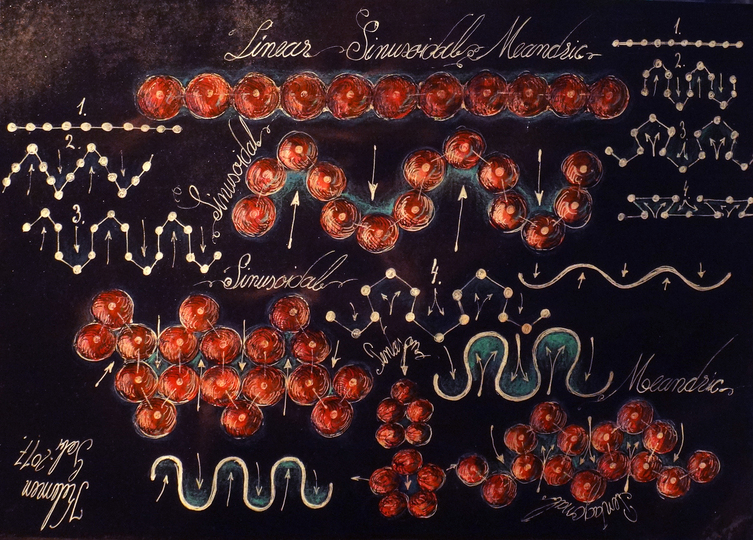 Linear Sinusoidal & Meandric
1.
2.
3.
4.
1.
2.
3.
Sinusoidal
Sinusoidal
4.
Meandric
Pentagonal
Kelemen
Feb. 2017.